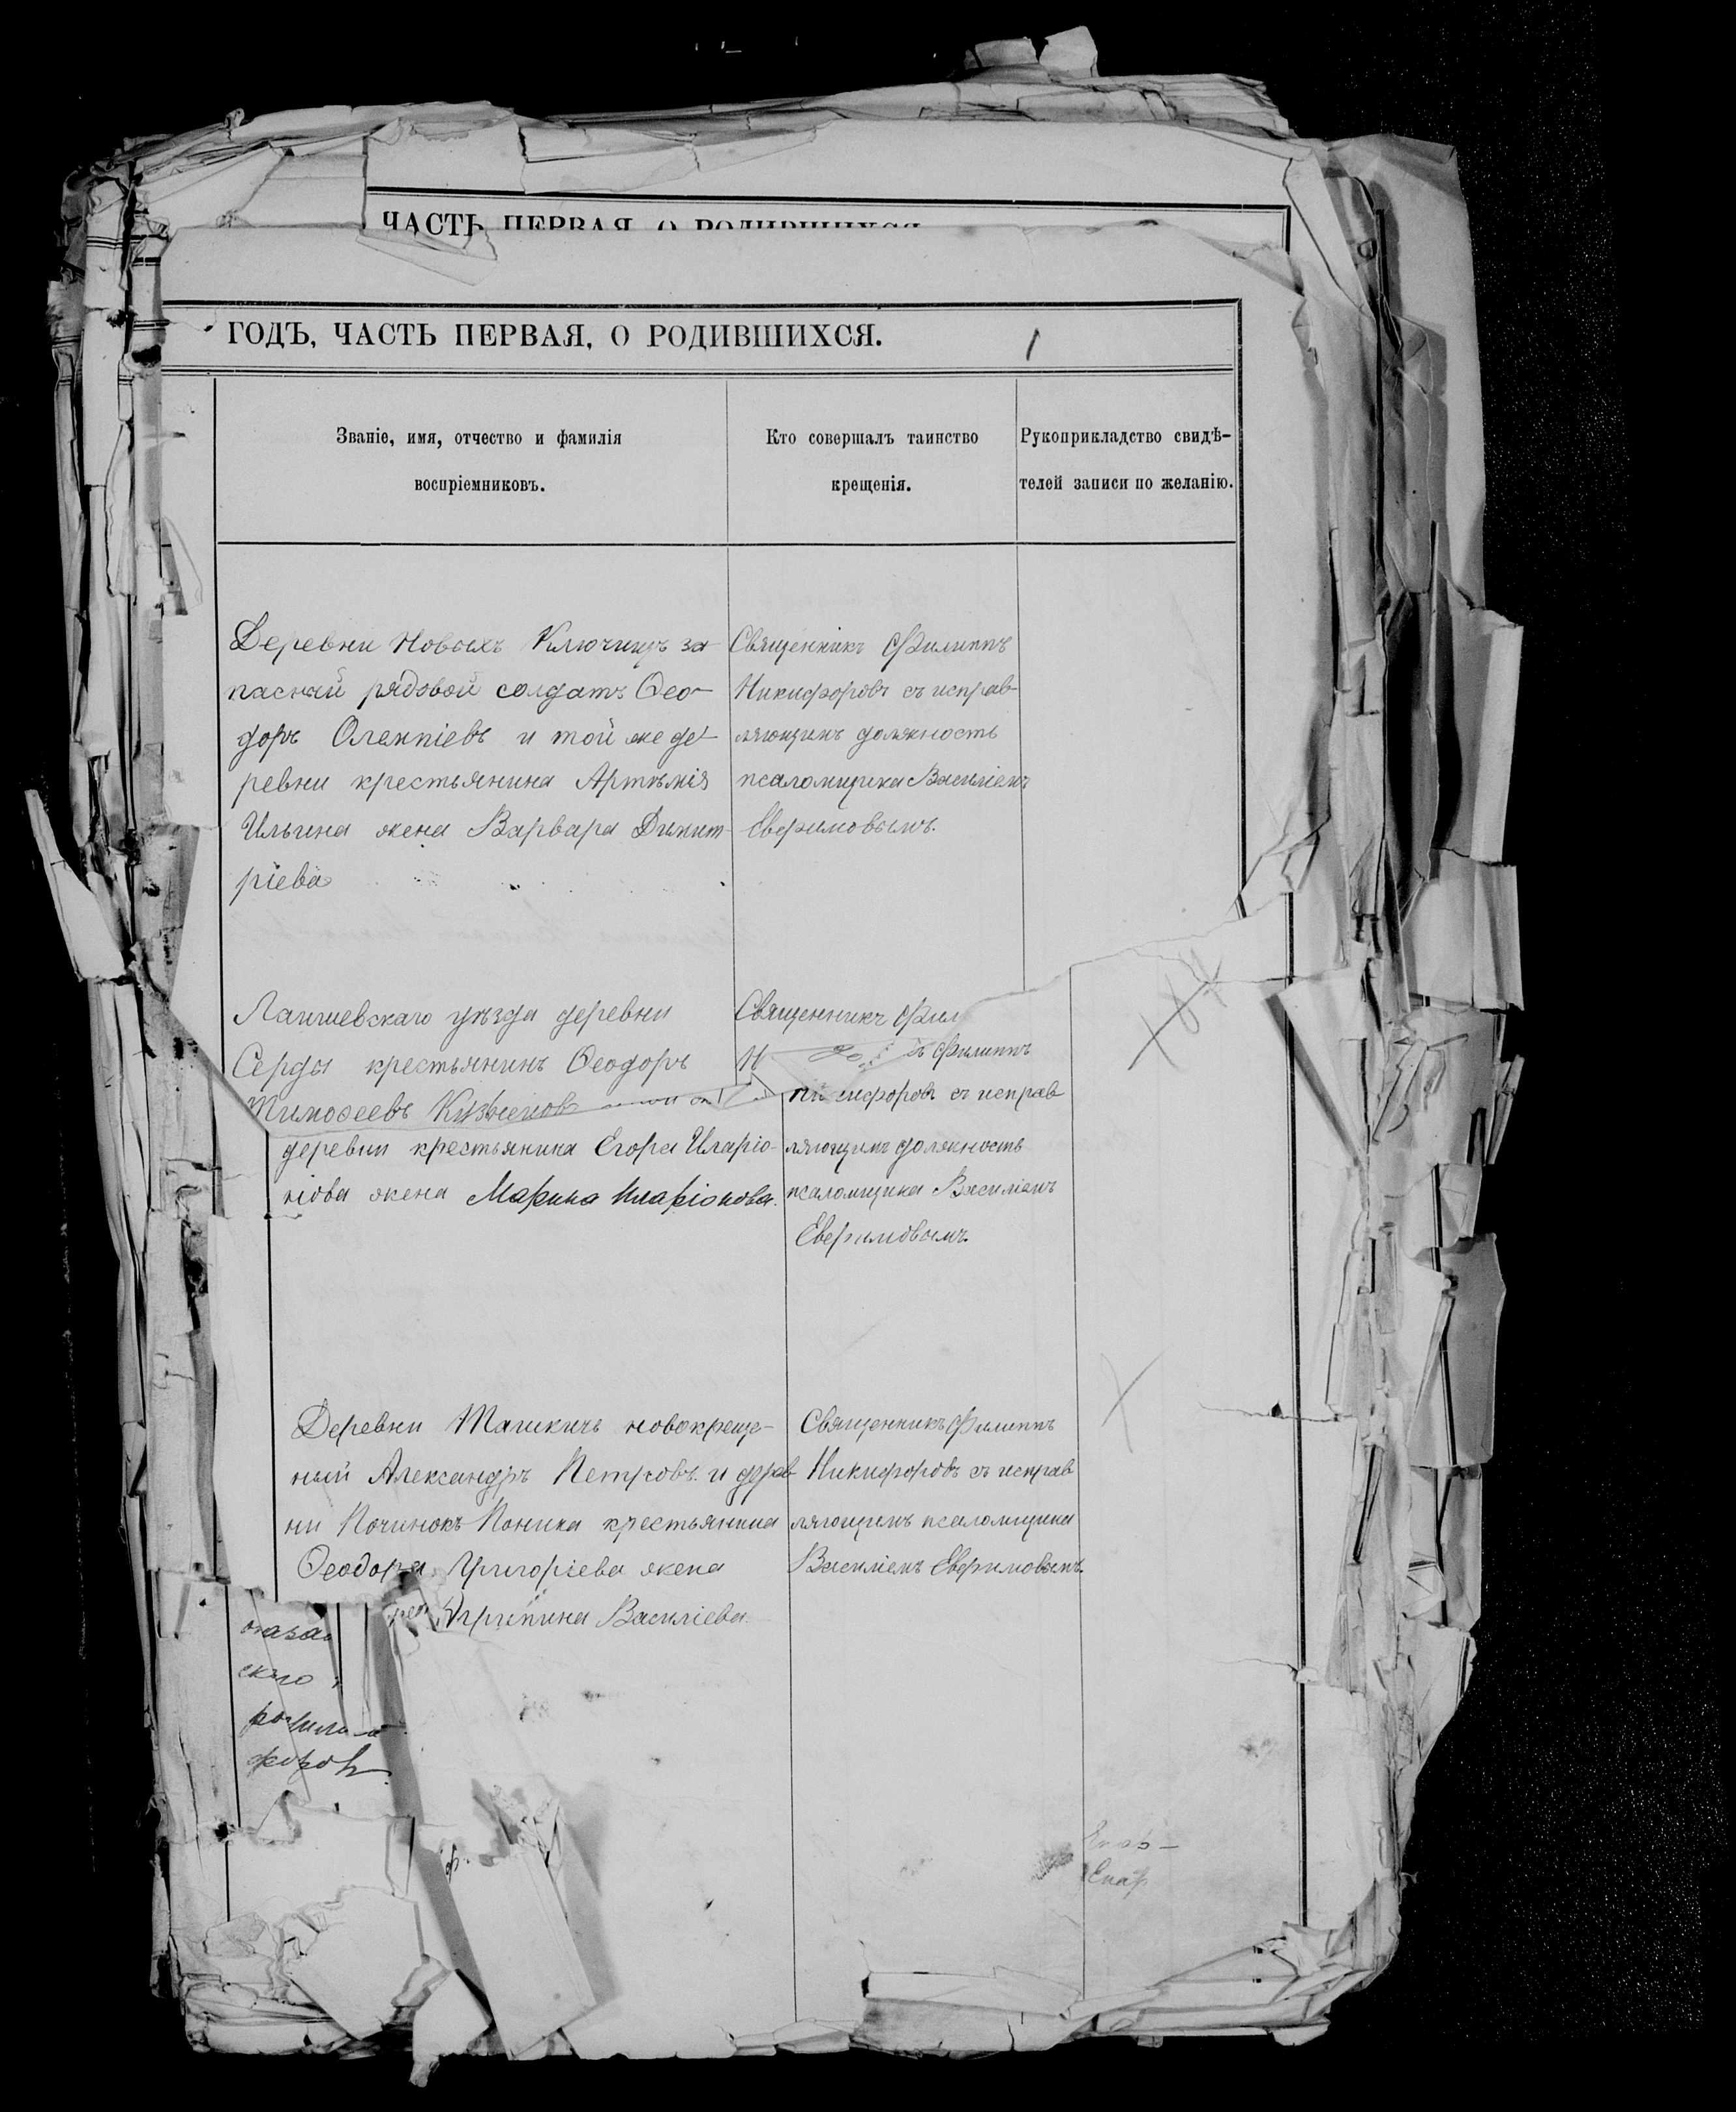 ЧАСТЬ ПЕРВАЯ, О РОДИВШИХСЯ
ГОДЪ, ЧАСТЬ ПЕРВАЯ, О РОДИВШИХСЯ.
1
Званіе, имя, отчество и фамилія
воспріемниковъ.
Кто совершалъ таинство
крещенія.
Рукоприкладство свидѣ-
телей записи по желанію.
Деревни Новыхъ Ключищъ за
пасный рядовой солдатъ Ѳео-
доръ Олемпіевъ и той же де
ревни крестьянина Артемія
Ильина жена Варвара Димит-
ріева
Священникъ Филиппъ
Никифоровъ съ исправ-
ляющимъ должность
псаломщика Василіемъ
Евфимовымъ.
Лаишевскаго уѣзда деревни
Серды крестьянинъ Ѳеодоръ
Тимофеевъ
деревни крестьянина Егора Иларіо-
нова жена Марина Иларіонова.
Священникъ Фил
Н
ъ Филиппъ
кифоровъ съ исправ
ляющимъ должность
псаломщика Василіемъ
Евфимовымъ.
Деревни Ташкичь новокреще-
ный Александръ Петровъ и дерев
ни Починокъ Поника крестьянина
Ѳеодора Григоріева жена
Агрипина Василіева
Священникъ Филиппъ
Никифоровъ съ исправ
ляющимъ псаломщика
Василіемъ Евфимовымъ.
каза
скаго
форовъ